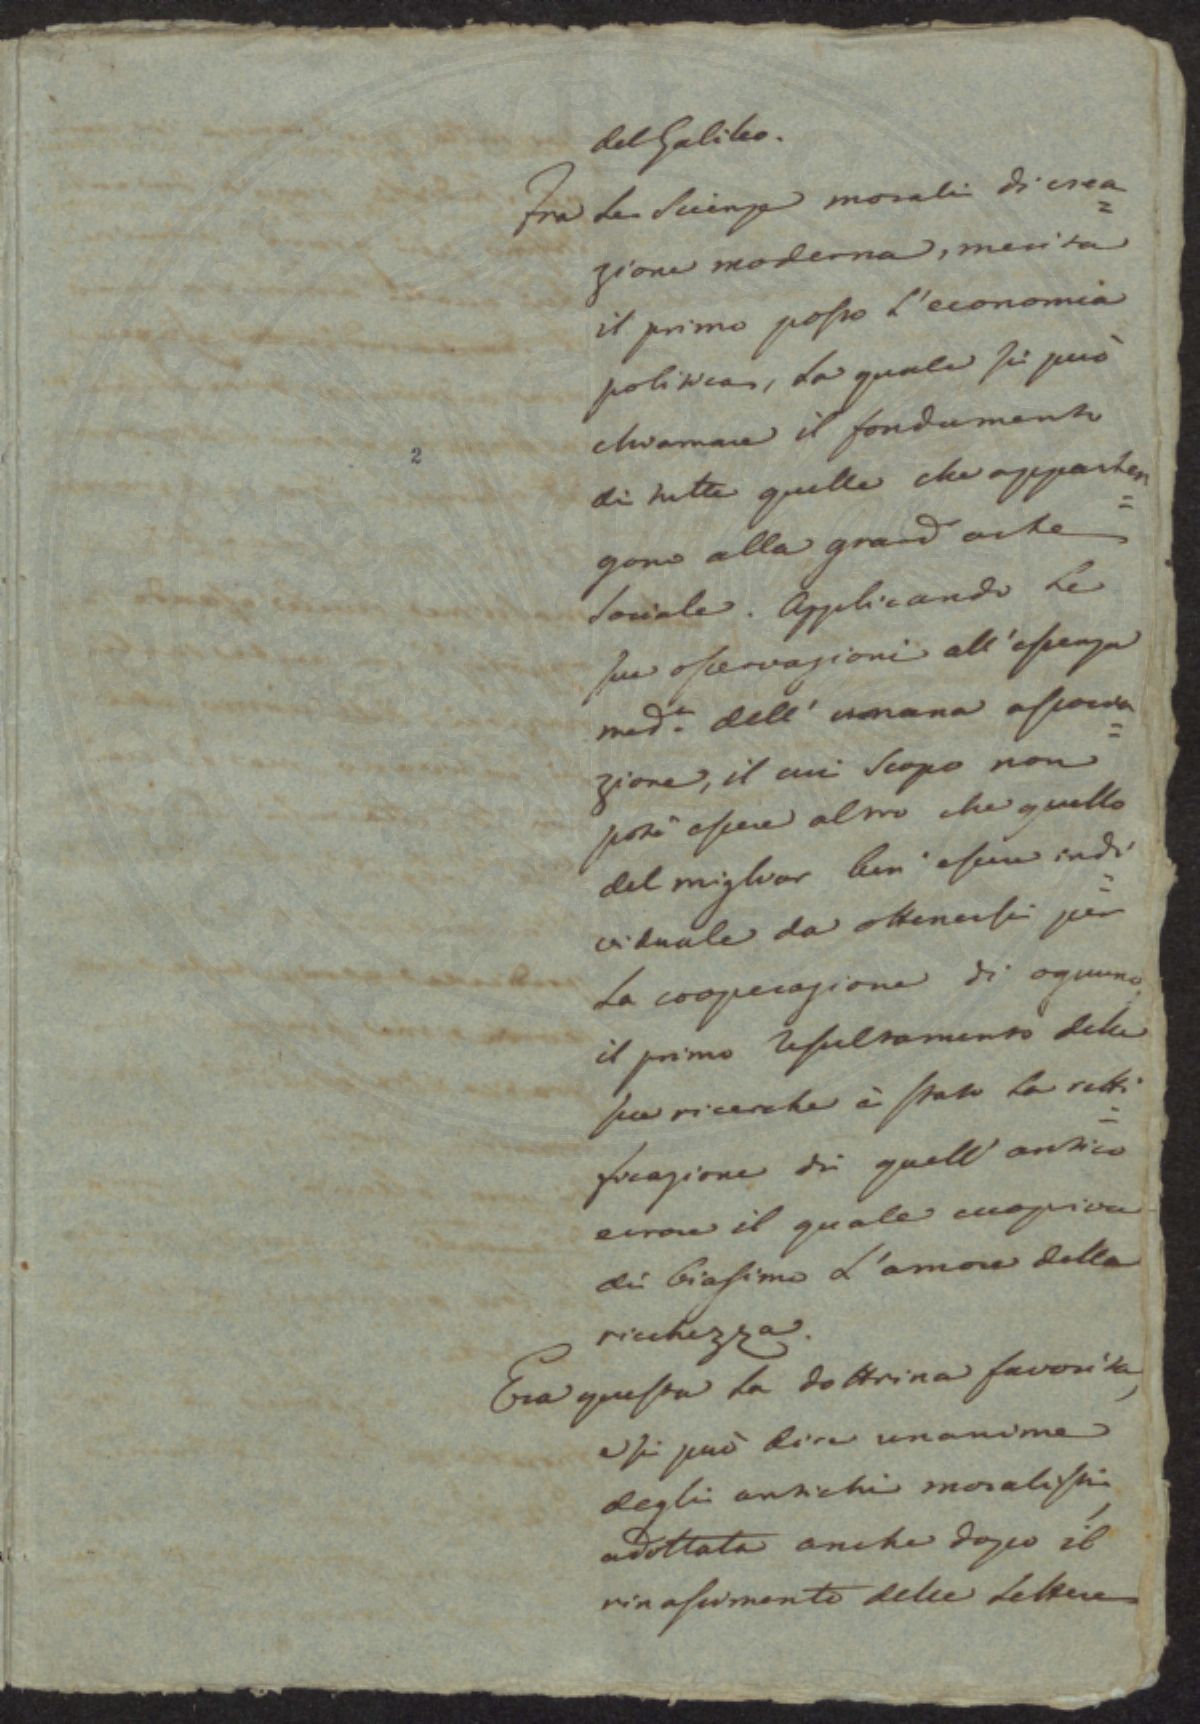 del Galileo.
Fra le Scienze morali di crea=
zione moderna, merita
il primo posto l'economia
politica, la quale si può
chiamare il fondamento
di tutte quelle che apparten=
gono alla grand'arte
Sociale. Applicando le
sue osservazioni all'essenza
med.a dell'umana associa=
zione, il cui scopo non
potè essere altro che quello
del miglior ben'essere indi=
viduale da ottenersi per
la cooperazione di ognuno,
il primo resultamento delle
sue ricerche è stato la retti=
ficazione di quell'antico
errore il quale cuopriva
di biasimo l'amore della
ricchezza.
Era questa la dottrina favorita,
e si può dire unanime
degli antichi moralisti,
adottata anche dopo il
rinascimento delle Lettere
2